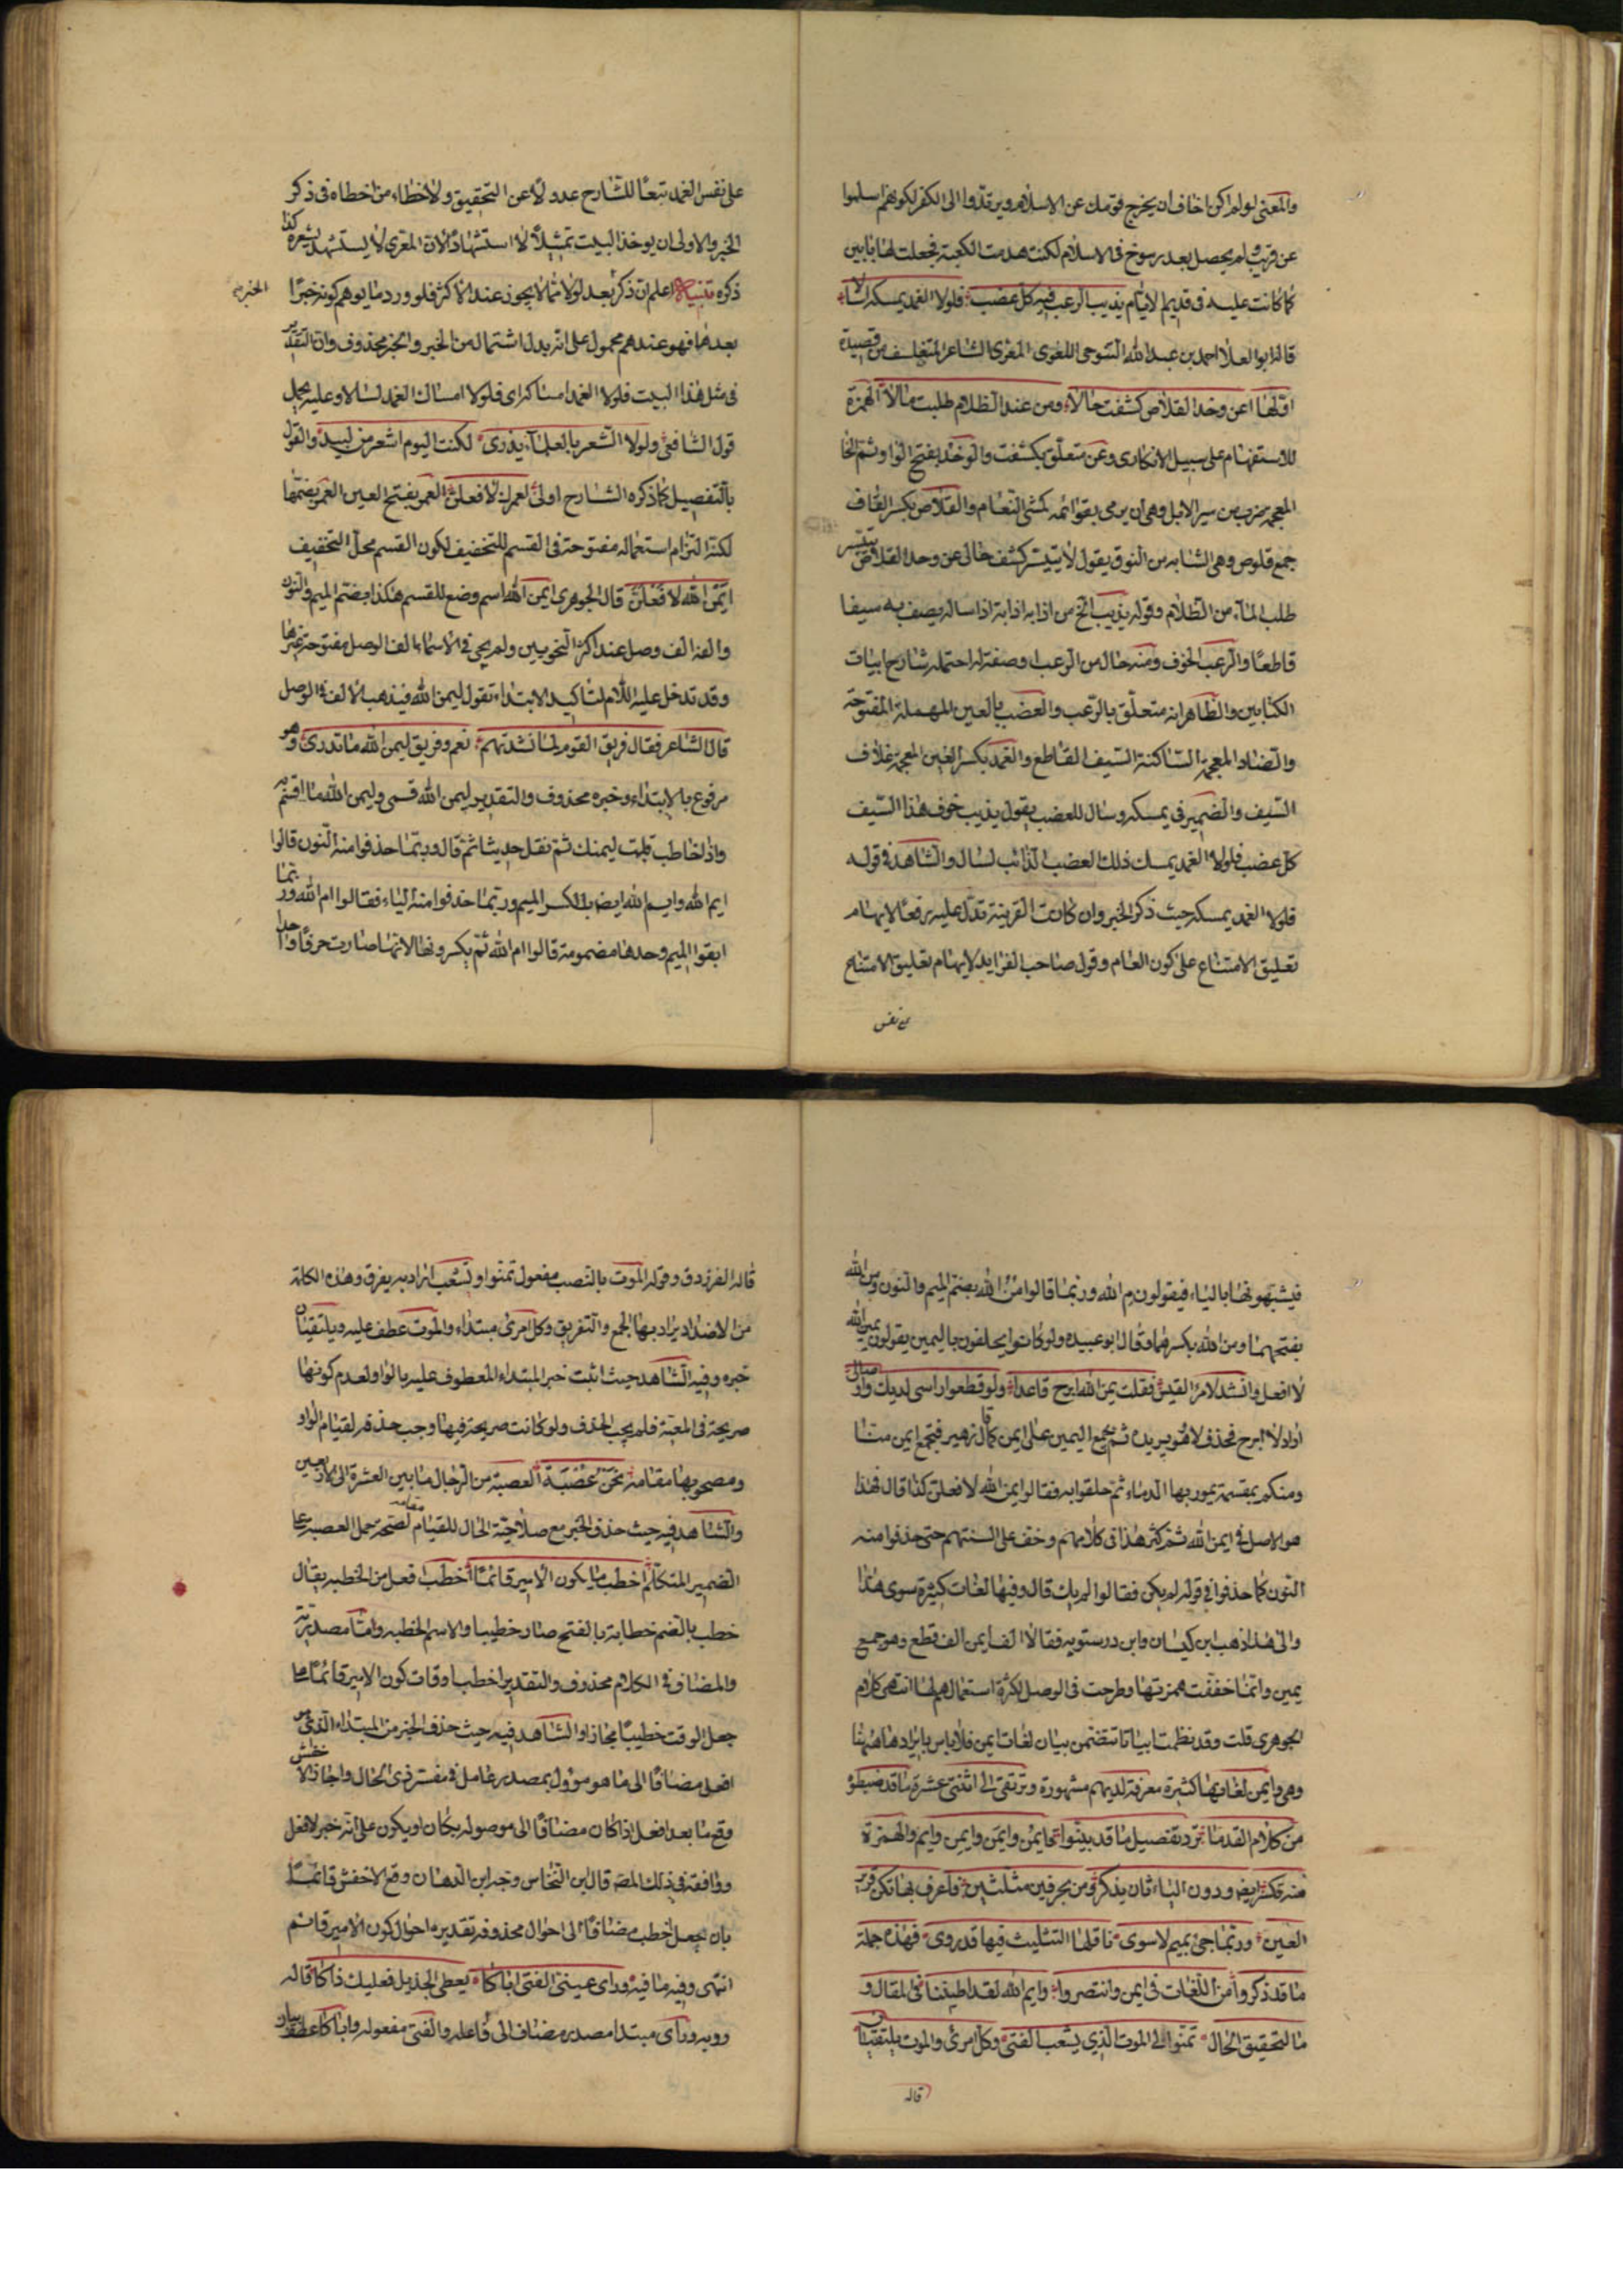 والمعنى لو لم اكن اخاف ان يخرج قومك عن الاسلام ويرتدّوا الى الكفر لكونهم اسلموا
عن قريب ولم يحصل بعد رسوخ في الاسلام لكنت هدمت الكعبة فجعلت لها بابين
كما كانت عليه في قديم الايام يذيب الرعب منه كل عضب فلولا الغمد يمسكه لسالا
قاله ابو العلا احمد بن عبد الله التنوحى اللغوى المعرى الشاعر المتفلسف من قصيدة
اولها اعن وخد القلاص كشفت حالا ومن عند الظلام طلبت مالا الهمزة
للاستفهام على سبيل الانكارى وعن متعلق بكشفت والوخد بفتح الواو وثم الخا
المعجمه ضرب من سير الابل وهى ان يرمى بقوائمه كمشى النعام والقلاص بكسر القاف
جمع قلوص وهى الشابه من النوق يقول لا يتيسر كشف حالى عن وخد القلاص
طلب الماء من الظلام وقوله يذيب الخ من اذابه اذابة اذا ساله يصف به سيفا
قاطعا والرعب الخوف ومنه حال من الرعب او صفة له احتمله شارح ابيات
الكتابين والظاهر انه متعلق بالرعب والعضب بالعين المهملة المفتوحة
والضاد المعجمة الساكنة السيف القاطع والغمد بكسر الغين المعجمة غلاف
السيف والضمير في يمسكه وسال للعضب يقول يذيب خوف هذا السيف
كل عضب فلولا الغمد يمسك ذلك العضب الذائب لسال والشاهد في قوله
فلولا الغمد يمسكه حيث ذكر الخبر وان كانت القرينة تدل عليه رفعا لايهام
تعليق الامتناع على كون العام وقول صاحب الفرايد لايهام تعليق الامتناع
على نفس
على نفس الغمد تبعا للشارح عدولا عن التحقيق ولا خطاء من اخطاه في ذكر
الخبر والاولى ان يوخذ البيت تمثيلا لا استشهادا لان المعرى لا يستشهد بشعره كذا
ذكره تنبيه اعلم ان ذكر بعد لولا مما لا يجوز عند الاكثر فلو ورد ما يوهم كونه خبرا
الخبر
بعدها فهو عندهم محمول على انه بدل اشتمال من الخبر والخبر محذوف وان التقدير
في مثل هذا البيت فلولا الغمد امساكه اى فلولا امساك الغمد لسال وعليه يحمل
قول الشافعى ولولا الشعر بالعلماء يذرى لكنت اليوم اشعر من لبيد والقول
بالتفصيل كما ذكره الشارح اولى لعمرك لافعلن العمر بفتح العين العمر بضمها
لكنه التزام استعماله مفتوحة في القسم للتخفيف لكون القسم محل التخفيف
ايمن الله لافعلن قال الجوهرى ايمن الله اسم وضع للقسم هكذا بضم الميم والنون
والفه الف وصل عند اكثر النحويين ولم يجى في الاسماء الف الوصل مفتوحة غيرها
وقد تدخل عليه اللام لتاكيد الابتداء تقول ليمن الله فيذهب الالف في الوصل
قال الشاعر فقال فريق القوم لما نشدتهم نعم وفريق ليمن الله ما ندرى وهو
مرفوع بالابتداء وخبره محذوف والتقدير ليمن الله قسمى وليمن الله ما اقسم به
واذا خاطب قلت ليمنك ثم نقل حديثا ثم قال وربما حذفوا منه النون قالوا
ايم الله وايم الله ايضا بالكسر الميم وربما حذفوا منه الياء فقالوا ام الله وربما
ابقوا الميم وحدها مضمومة قالوا م الله ثم يكسرونها لانها صارت حرفا واحدا
فيشبهونها بالياء فيقولون م الله وربما قالوا من الله بضم الميم والنون ومن الله
بفتحهما ومن الله بكسرهما وقال ابو عبيده ولو كانوا يحلفون باليمين يقولون يمين الله
لا افعل وانشد لامرء القيس فقلت يمين الله ابرح قاعدا ولو قطعوا راسى لديك واوصالى
اراد لا ابرح فحذف لا هو يريده ثم يجمع اليمين على ايمن كما قال زهير فتجمع ايمن منا
ومنكم بمقسمة يمور بها الدماء ثم حلفوا به فقالوا ايمن الله لافعلن كذا قال فهذا
هو الاصل في ايمن الله ثم كثر هذا في كلامهم وخف على السنتهم حتى حذفوا منه
النون كما حذفوا في قوله لم يكن فقالوا لم يك قال وفيها لغات كثيرة سوى هذا
والى هذا ذهب ابن كيسان وابن درستويه فقالا الف ايمن الف قطع وهو جمع
يمين وانما خففت همزتها وطرحت في الوصل لكثرة استعمالهم لها انتهى كلام
الجوهرى قلت وقد نظمت ابياتا تتضمن بيان لغات ايمن فلا باس بايرادها ههنا
وهى وايمن لغاتها كثيرة معرفة لديهم مشهورة وترتقى الى اثنتى عشرة ما قد ضبطو
من كلام القدما تزد تفصيل ما قد بينوا فحا ايمن وايمن وايمن وايم والهمزة
منه فكسر ايضا ودون الياء فان يذكر ومن بحرفين مثلثين فاعرف بها تكن قرير
العين وربما جئ بميم لا سوى ناقلها التثليث فيها قد روى فهذه جملة
ما قد ذكروا من اللغات في ايمن وانتصروا وايم الله لقد اطيفنا في المقال و
ما لتحقيق الحال تمنوا لى الموت الذي يشعب الفتى وكل امرئ والموت يلتقيان
قاله
قاله الفرزدق وقوله الموت بالنصب مفعول تمنوا ويشعب اراد به يفرق وهذه الكلمة
من الاضداد يراد بها الجمع والتفريق وكل امرئ مبتداء والموت عطف عليه ويلتقيان
خبره وفيه الشاهد حيث اثبت خبر المبتداء المعطوف عليه بالواو لعدم كونها
صريحة في المعية فلم يجب الحذف ولو كانت صريحة فيها وجب حذفه لقيام الواو
ومصحوبها مقامه نحن عصبة العصبة من الرجال ما بين العشرة الى الاربعين
والشاهد فيه حيث حذف الخبر مع صلاحية الحال للقيام مقامه لصحة حمل العصبة على
الضمير المتكلم اخطب ما يكون الامير قائما اخطب افعل من الخطبه يقال
خطب بالضم خطابة بالفتح صار خطيبا والاسم الخطبه واما مصدرية
والمضاف في الكلام محذوف والتقدير اخطب اوقات كون الامير قائما
جعل الوقت خطيبا مجازا والشاهد فيه حيث حذف الخبر من المبتداء الذى هو
افعل مضافا الى ما هو موول بمصدر عامل في مفسر ذى الحال واجاز الاخفش
رفع ما بعد افعل اذا كان مضافا الى موصوله بكان او يكون على انه خبر لافعل
ووافقه في ذلك المص قال ابن النحاس وجه ابن الدهان رفع الاخفش قائما
بان يجعل اخطب مضافا الى احوال محذوفه تقديره احوال كون الامير قائم
انتهى وفيه ما فيه وراى عينى الفتى اباكا يعطى الجزيل فعليك ذاكا قاله
رويه وراى مبتدا مصدر مضاف الى فاعله والفتى مفعوله واباكا عطف بيان